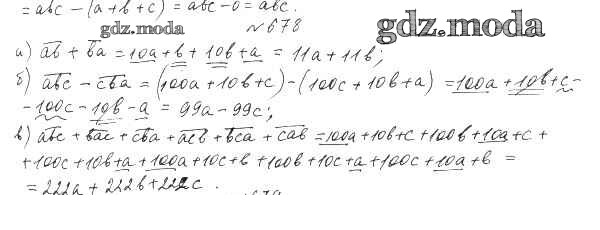 = abc − (a + b + c) = abc − 0 = abc.
gdz.moda
№ 678
gdz.moda
а) ab + ba = 10a + b + 10b + a = 11a + 11b;
б) abc − cba = (100a + 10b + c) − (100c + 10b + a) = 100a + 10b + c −
− 100c − 10b − a = 99a − 99c;
в) abc + bac + cba + acb + bca + cab = 100a + 10b + c + 100b + 10a + c +
+ 100c + 10b + a + 100a + 10c + b + 100b + 10c + a + 100c + 10a + b =
= 222a + 222b + 222c.